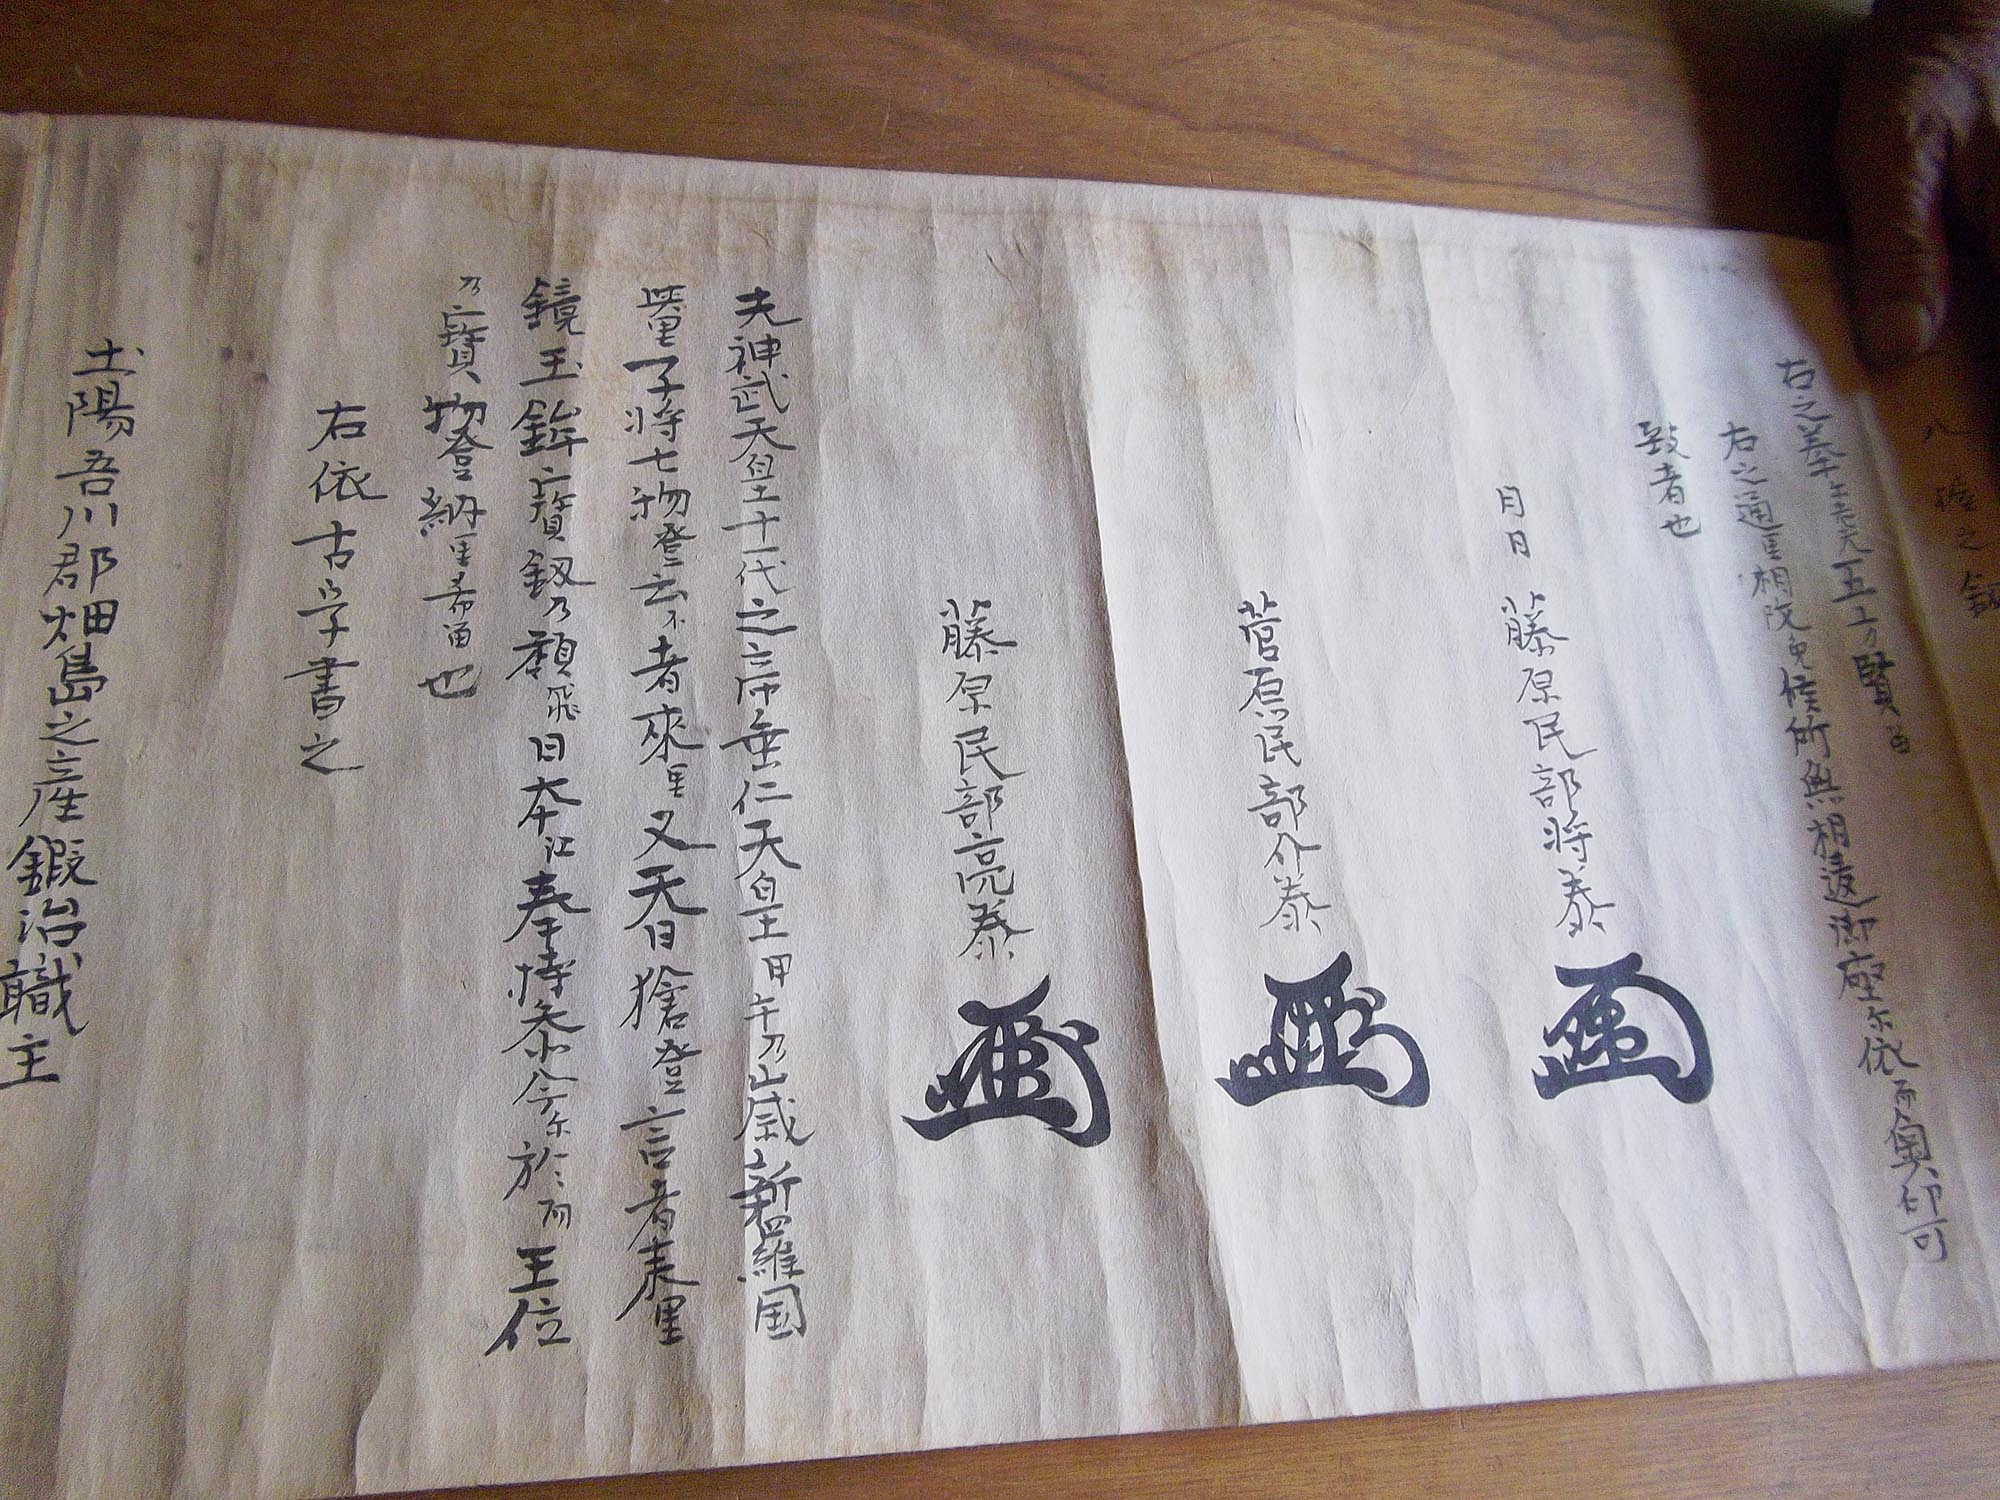 八 之釼
右之 五 乃賢
右之通里相改免候所無相違御座尓依而奥印可
致者也
月日 藤原民部将泰
菅原民部介泰
藤原民部亮泰
夫神武天皇十一代之帝垂仁天皇甲午乃歳新羅国
子将七物登云者来里又天日槍登言者表里
鏡玉鉾寳釼乃類飛日本江奉持参今尓於而王位
乃寳物登納里希留也
右依古字書之
土陽吾川郡畑島之産鍛治職主